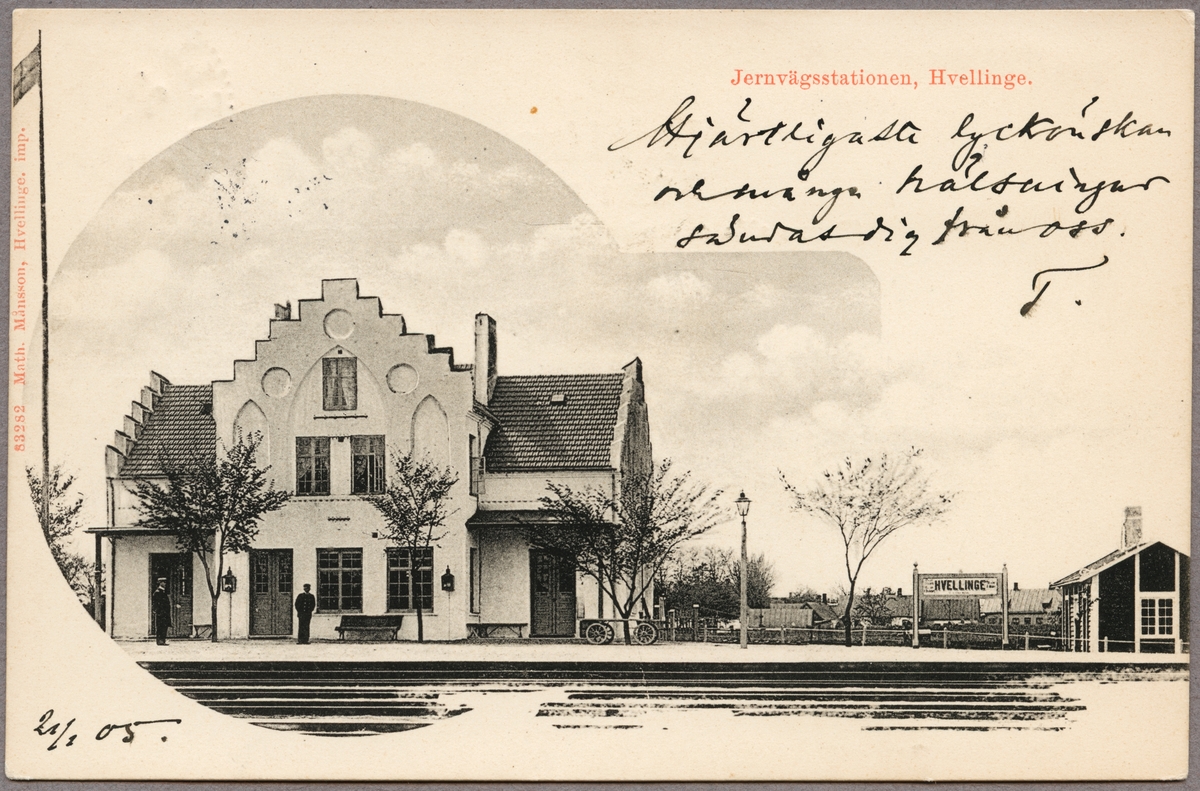 Jernvägsstationen, Hvellinge.
Hjärtligaste lyckönskan
och många hälsningar
sändas dig från oss.
T.
83282 Math. Månsson, Hvellinge. imp.
HVELLINGE
21/1 05.